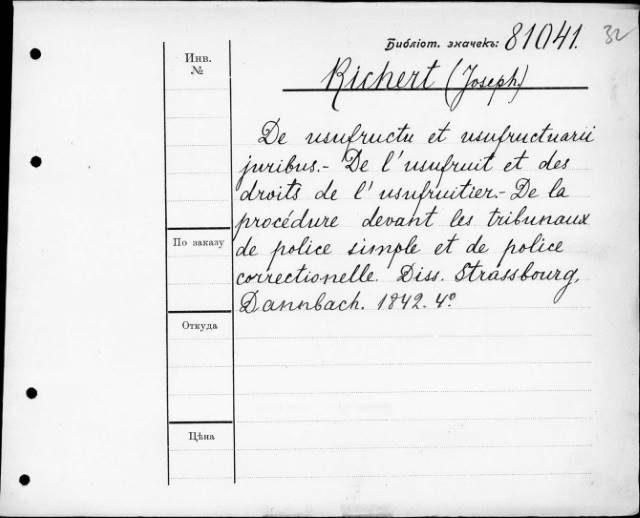 Библіот. значекъ: 81041. 32
Инв.
№
Richert (Joseph)
De usufructu et usufructuarii
juribus.- De l'usufruit et des
droits de l'usufruitier.- De la
procédure devant les tribunaux
По заказу
de police simple et de police
correctionelle. Diss. Strassbourg,
Dannbach. 1842. 4°
Откуда
Цѣна